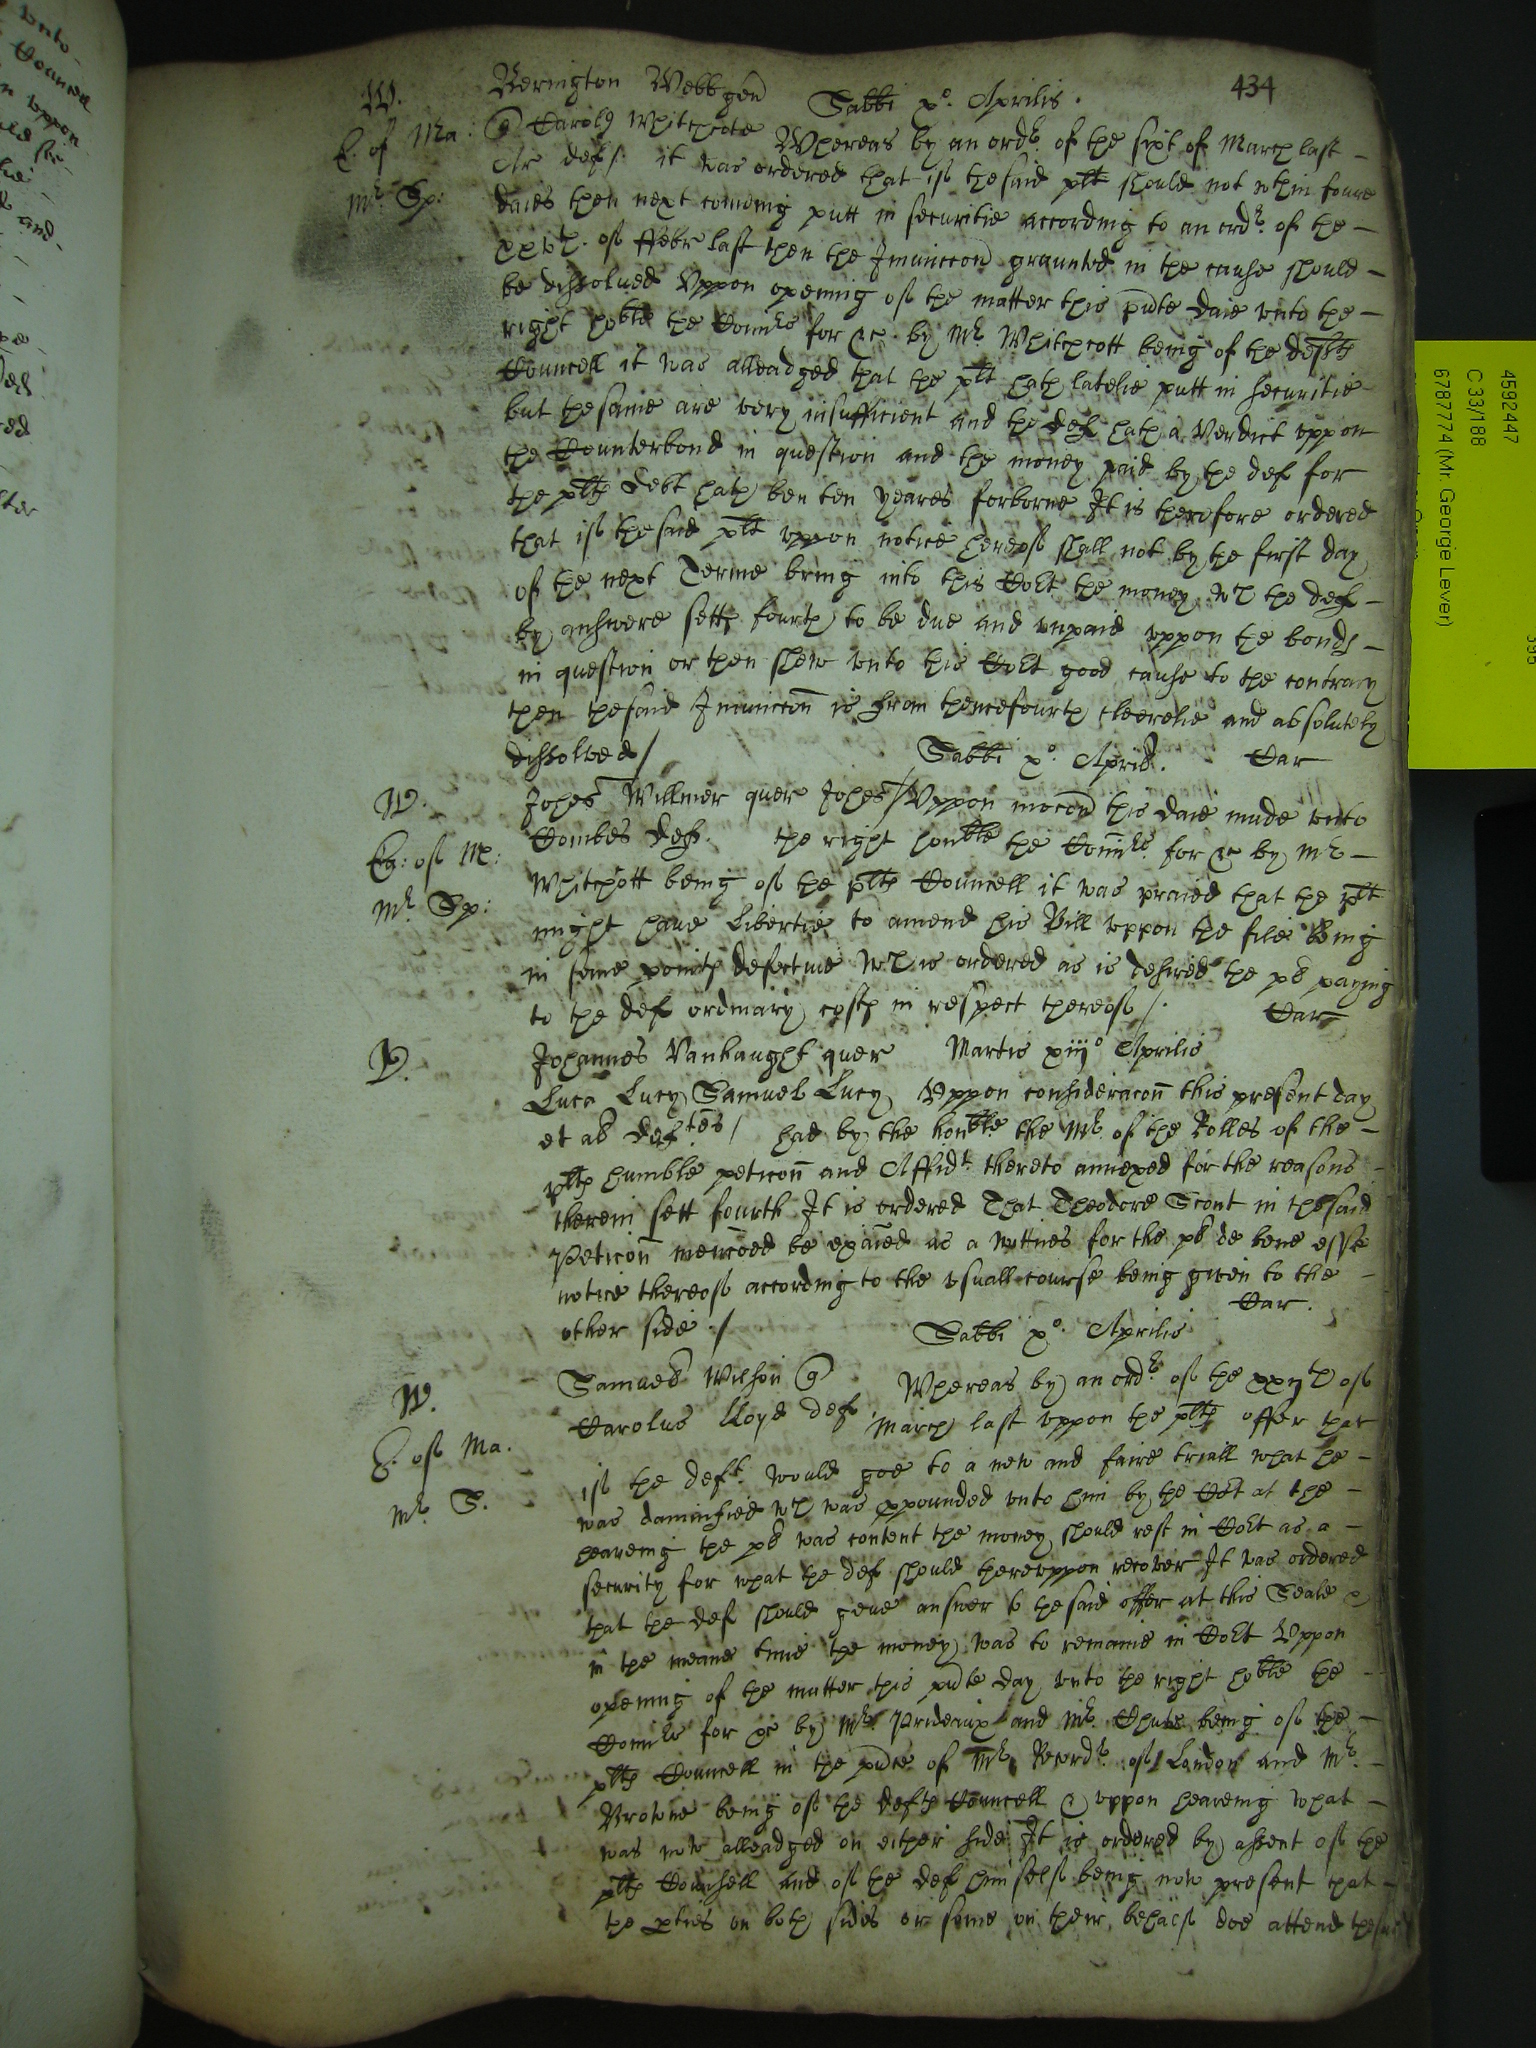 434
W. Berington Webb gen Sabbi xo. Aprilis.
E. of Ma: Carolus Whitchcote Whereas by an ordr. of the sixt of March last
Ar def/. it was ordered that if the said plt should not wthin foure
Mr. Sp: daies then next comeing putt in securitie according to an ordr. of the
xxvth. of ffebr last then the Iniunccon graunted in the cause should
be dissolued Vppon opening of the matter this pnte daie vnto the
right hoble the Comrs for &c. by Mr. Whitchcott being of the defts
Councell it was alleadged that the plt hath latelie putt in securitie
but the same are very insufficient and the def hath a Verdict vppon
the Counterbond in question and the money paid by the def for
the plts debt hath ben ten yeares forborne It is therefore ordered
that if the said plt vppon notice hereof shall not by the first day
of the next Terme bring into this Cort the money wch the def
by answere setts fourth to be due and vnpaid vppon the bonds
in question or then shew vnto this Cort good cause to the contrary
then the said Iniunccon is from thencefourth cleerelie and absolutely
dissolved/ Sabbi xo. Aprilis. Car
W. Johes Willmer quer Johes/ Vppon mocon this daie made vnto
Combes def. the right honble the Comrs. for &c by Mr
Ex: of Me: Whitchcott being of the plts Councell it was praied that the plt
Mr Sp: might haue libertie to amend his Bill vppon the file being
in some points defectiue wch is ordered as is desired the pl paying
to the def ordinary costs in respect thereof/. Car
V. Johannes Vanhaught quer Martis xiijo Aprilis
Luca Lucy Samuel Lucy Vppon consideracon this present day
et al deftes/ had by the honble the Mr. of the Rolles of the
plts humble peticon and Affidt. thereto annexed for the reasons
therein sett fourth It is ordered That Theodore Scout in the said
Peticon mencoed be exaied as a wittnes for the pl de bene esse
notice thereof according to the vsuall course being given to the
other side :/ Car.
Sabbi xo. Aprilis
W. Samuel Wilson Whereas by an ordr. of the xxijth of
Carolus Lloyd def March last vppon the plts offer that
E. of Ma. if the deft. would goe to a new and faire triall what he
Mr. S. was damnified wch was ppounded vnto him by the Cort at the
heareing the pl was content the money should rest in Cort as a
security for what the def should therevppon recover It was ordered
that the def should geue answer to the said offer at this Seale &
in the meane time the money was to remaine in Cort Vppon
opening of the matter this pnte day vnto the right hoble the
Comrs for &c by Mr. Prideaux and Mr. Chute being of the
plts Councell in the pnce of Mr Recordr. of London and Mr.
Browne being of the defts Councell & vppon heareing what
was now alleadged on either side It is ordered by assent of the
plts Counsell and of the def himself being now present that
the pties on both sides or some on their behalf doe attend the said
4592447
C 33/188
6787774 (Mr. George Lever)